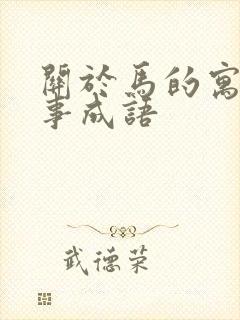 關於馬的寓
事成語
武德荣